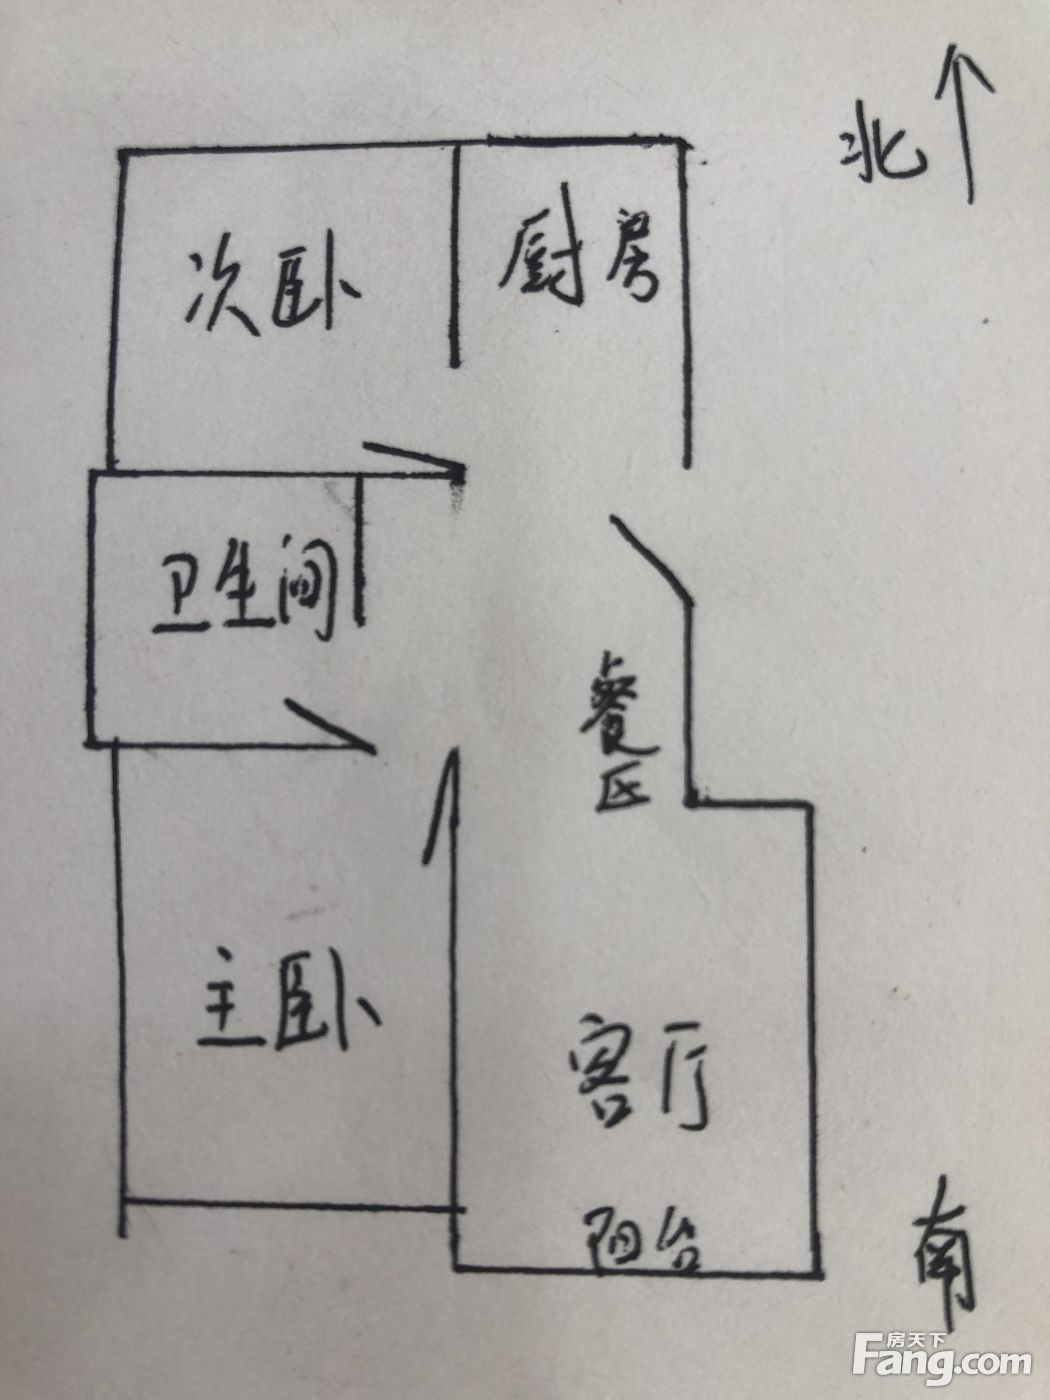 北
次卧
厨房
卫生间
餐区
主卧
客厅
阳台
南
房天下
Fang.com